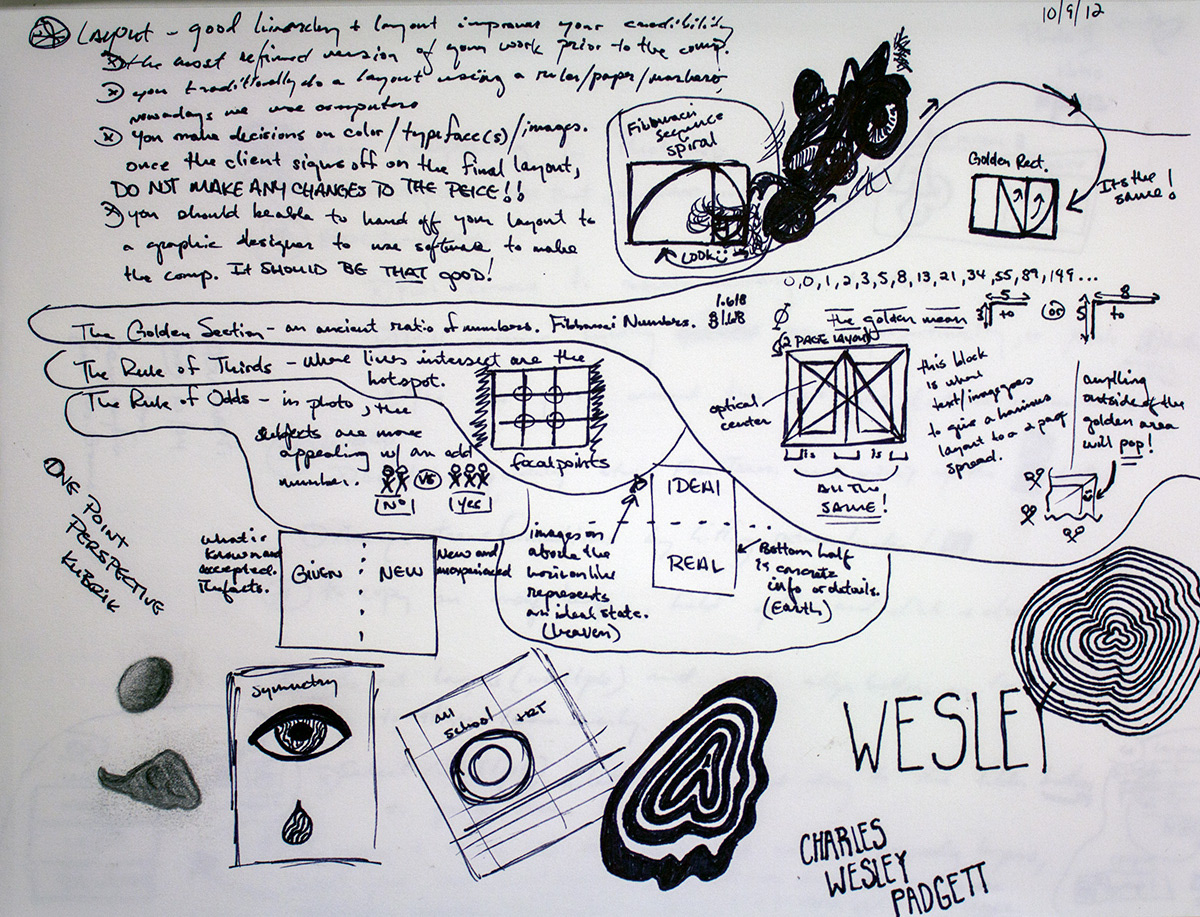 10/9/12
Layout - good hierarchy + layout improves your credibility
the most refined version of your work prior to the comp.
you traditionally do a layout using a ruler/paper/markers,
nowadays we use computers
you make decisions on color/typeface(s)/images.
once the client signs off on the final layout,
DO NOT MAKE ANY CHANGES TO THE PEICE!!
you should be able to hand off your layout to
a graphic designer to use software to make
the comp. IT SHOULD BE THAT GOOD!
Fibbonacci
sequence
spiral
LOOK
Golden Rect.
It's the
same!
0,0,1,2,3,5,8,13,21,34,55,89,149...
The Golden Section - an ancient ratio of numbers. Fibbonaci Numbers.
1.618
the golden mean
5
3 to
or
8
5 to
The Rule of Thirds - where lines intersect are the
hotspot.
focal points
2 PAGE LAYOUT
optical
center
is is
All the
SAME!
this block
is where
text/image goes
to give a
layout to a 2 page
spread.
anything
outside of the
golden area
will pop!
The Rule of Odds - in photo, the
subjects are more
appealing w/ an odd
number.
vs
No Yes
ONE POINT
PERSPECTIVE
KUBRIK
what is
known and
accepted.
The facts.
GIVEN NEW
New and
unexperienced
images on
above the
horizon line
represents
an ideal state.
(heaven)
IDEAL
REAL
Bottom half
is concrete
info or details.
(Earth)
Symmetry
school ART
WESLEY
CHARLES
WESLEY
PADGETT